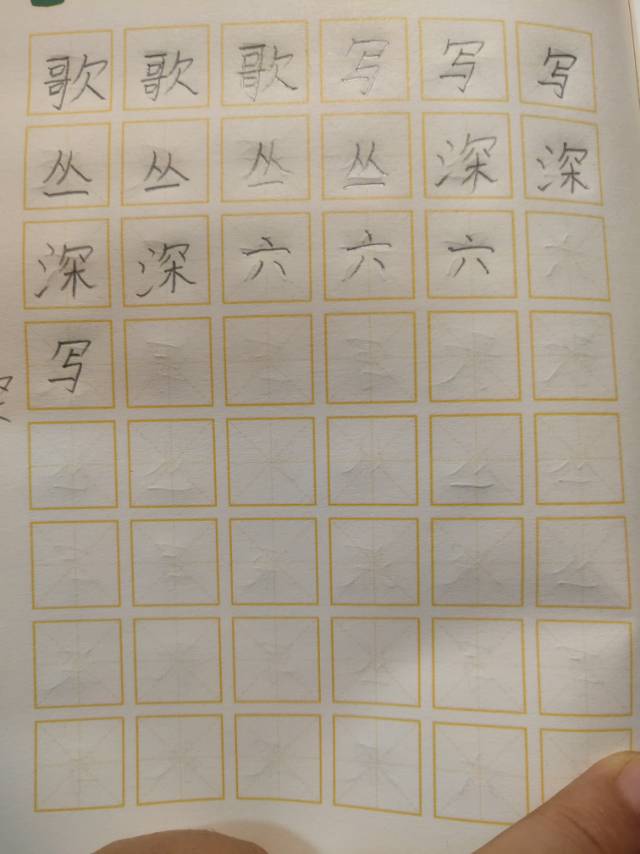 歌歌歌写写写
丛丛丛丛深深
深深六六六
写